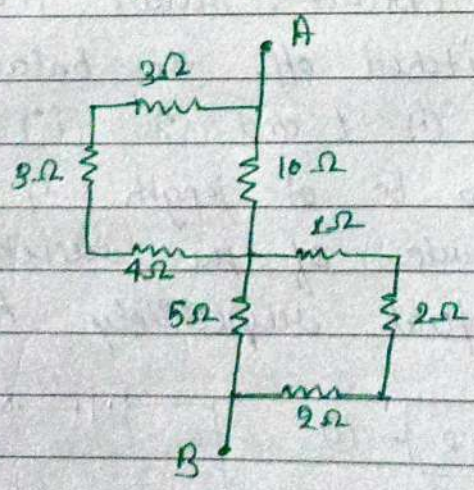 A
3Ω
3Ω
10Ω
1Ω
4Ω
5Ω
2Ω
2Ω
B